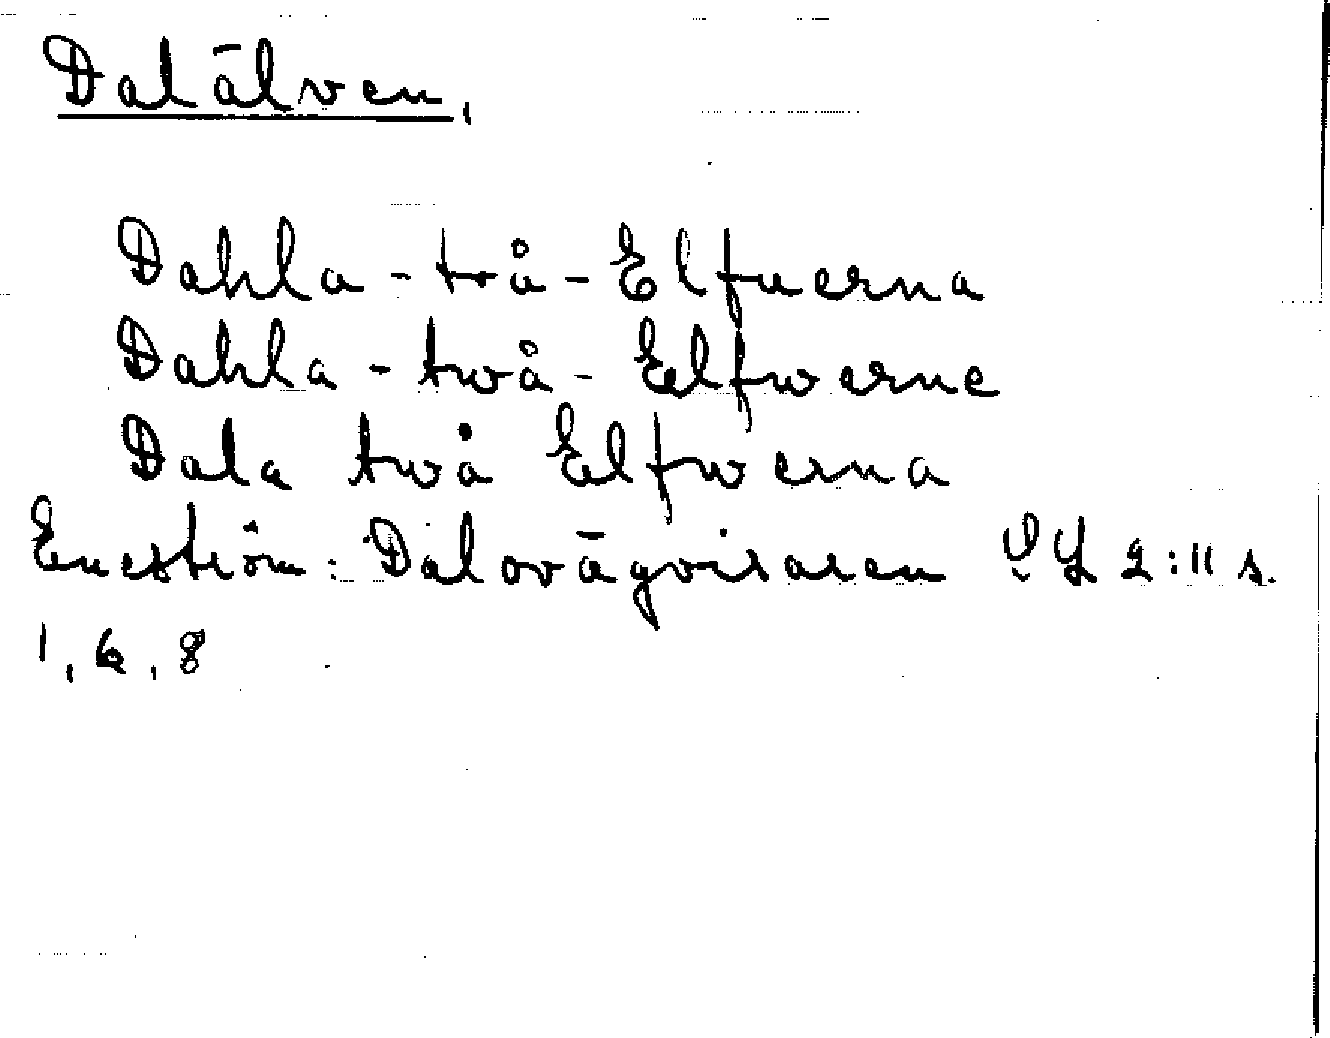 Dalälven,
Dahla-två-Elfuerna
Dahla-twå-Elfwerne
Dala twå Elfwerna
Eneström: Dalovägvisaren SL 2:11 s.
1, 6, 8